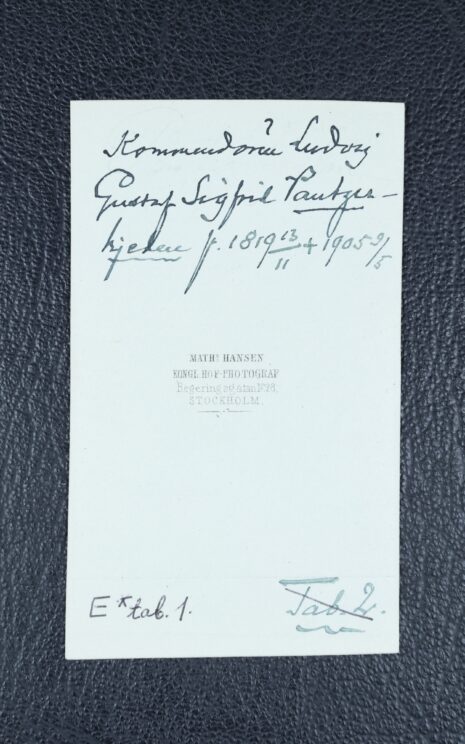 Kommendören Ludvig
Gustaf Sigfrid Pantzer-
hjelm f. 1819 13/11 + 1905 9/5
MATHS HANSEN
KONGL. HOF-PHOTOGRAF
Regeringsgatan No 28.
STOCKHOLM.
E* tab. 1.
Tab 2.